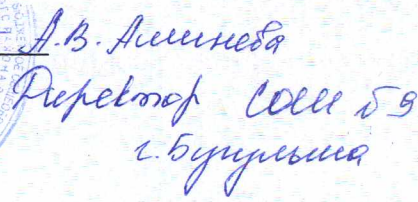 А.В. Аминева
Директор СОШ №9
г. Бугульма